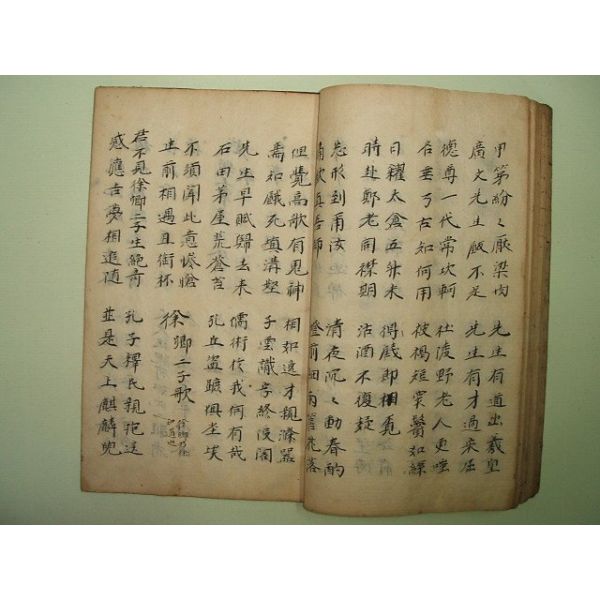 甲第紛〻厭梁肉　先生有道出羲皇
廣文先生飯不足　先生有才過宋屈
德尊一代常坎軻　杜陵野老人更嗤
名垂万古如何用　被褐短窄鬢如絲
日糴太倉五升米　得錢即相覓
時赴鄭老同襟期　沽酒不復疑
忘形到爾汝　清夜沉〻動春酌
痛飲真吾師　燈前細雨簷花落
但覺高歌有鬼神　相如逸才親滌器
焉知餓死填溝壑　子雲識字終投閣
先生早賦歸去來　儒術於我何有哉
石田茅屋荒蒼苔　孔丘盜蹠俱塵埃
不須聞此意慘愴
生前相遇且銜杯　徐卿二子歌
君不見徐卿二子生絕奇　孔子釋氏親抱送
感應吉夢相追隨　並是天上麒麟兒